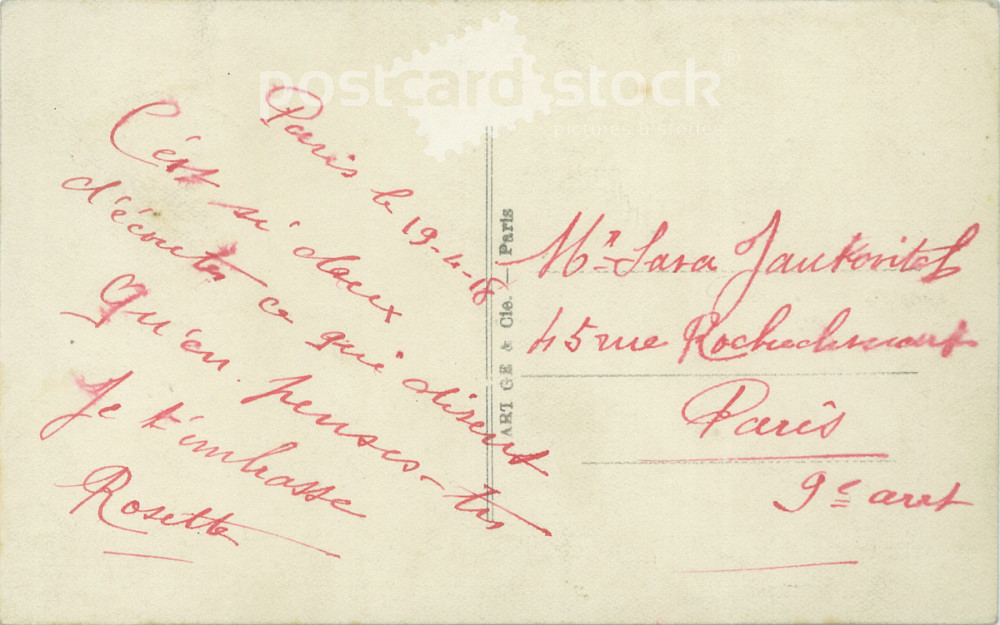 postcard stock
pictures & stories
Paris le 19-4-18
C'est si doux
d'écouter ce qui disent
Qu'en penses-tu
Je t'embrasse
Rosette
ART GE & Cie. — Paris
Mr Sara Jankovitch
45 rue Rochechouart
Paris
9e arrt